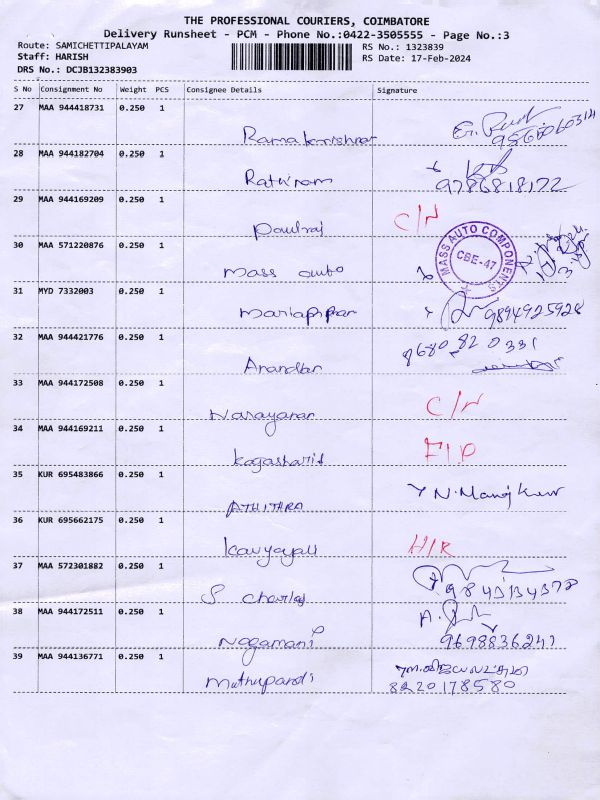 THE PROFESSIONAL COURIERS, COIMBATORE
Delivery Runsheet - PCM - Phone No.:0422-3505555 - Page No.:3
Route: SAMICHETTIPALAYAM RS No.: 1323839
Staff: HARISH RS Date: 17-Feb-2024
DRS No.: DCJB132383903
S No Consignment No Weight PCS Consignee Details Signature
27 MAA 944418731 0.250 1
Ramakrishnan
28 MAA 944182704 0.250 1
Rathinam 9786818172
29 MAA 944169209 0.250 1
Paulraj C/N
30 MAA 571220876 0.250 1
Mass auto MASS AUTO COMPONENTS CBE-47
31 MYD 7332003 0.250 1
Mariappan 9894925928
32 MAA 944421776 0.250 1
Anandan 8680820331
33 MAA 944172508 0.250 1
Narayanan C/N
34 MAA 944169211 0.250 1
35 KUR 695483866 0.250 1
ATHITHRA N. Manoj Kumar
36 KUR 695662175 0.250 1
H/R
37 MAA 572301882 0.250 1
S Charles
38 MAA 944172511 0.250 1
Nagamani 9698836241
39 MAA 944136771 0.250 1
Muthupandi 8220178580